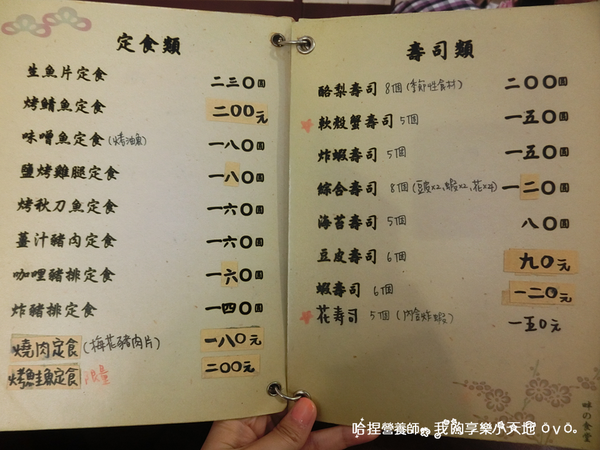 定食類
生魚片定食 二三〇圓
烤鯖魚定食 二〇〇元
味噌魚定食(烤油魚) 一八〇圓
鹽烤雞腿定食 一八〇圓
烤秋刀魚定食 一六〇圓
薑汁豬肉定食 一六〇圓
咖哩豬排定食 一六〇圓
炸豬排定食 一四〇圓
燒肉定食(梅花豬肉片) 一八〇元
烤鮭魚定食 限量 二〇〇元
壽司類
酪梨壽司 8個(季節性食材) 二〇〇圓
軟殼蟹壽司 5個 一五〇圓
炸蝦壽司 5個 一五〇圓
綜合壽司 8個(豆皮x2、蝦x2、花x4) 一二〇圓
海苔壽司 5個 八〇圓
豆皮壽司 6個 九〇元
蝦壽司 6個 一二〇元
花壽司 5個(內含炸蝦) 一五〇元
味の食堂
哈捏營養師。我的享樂小天地 ōvō。